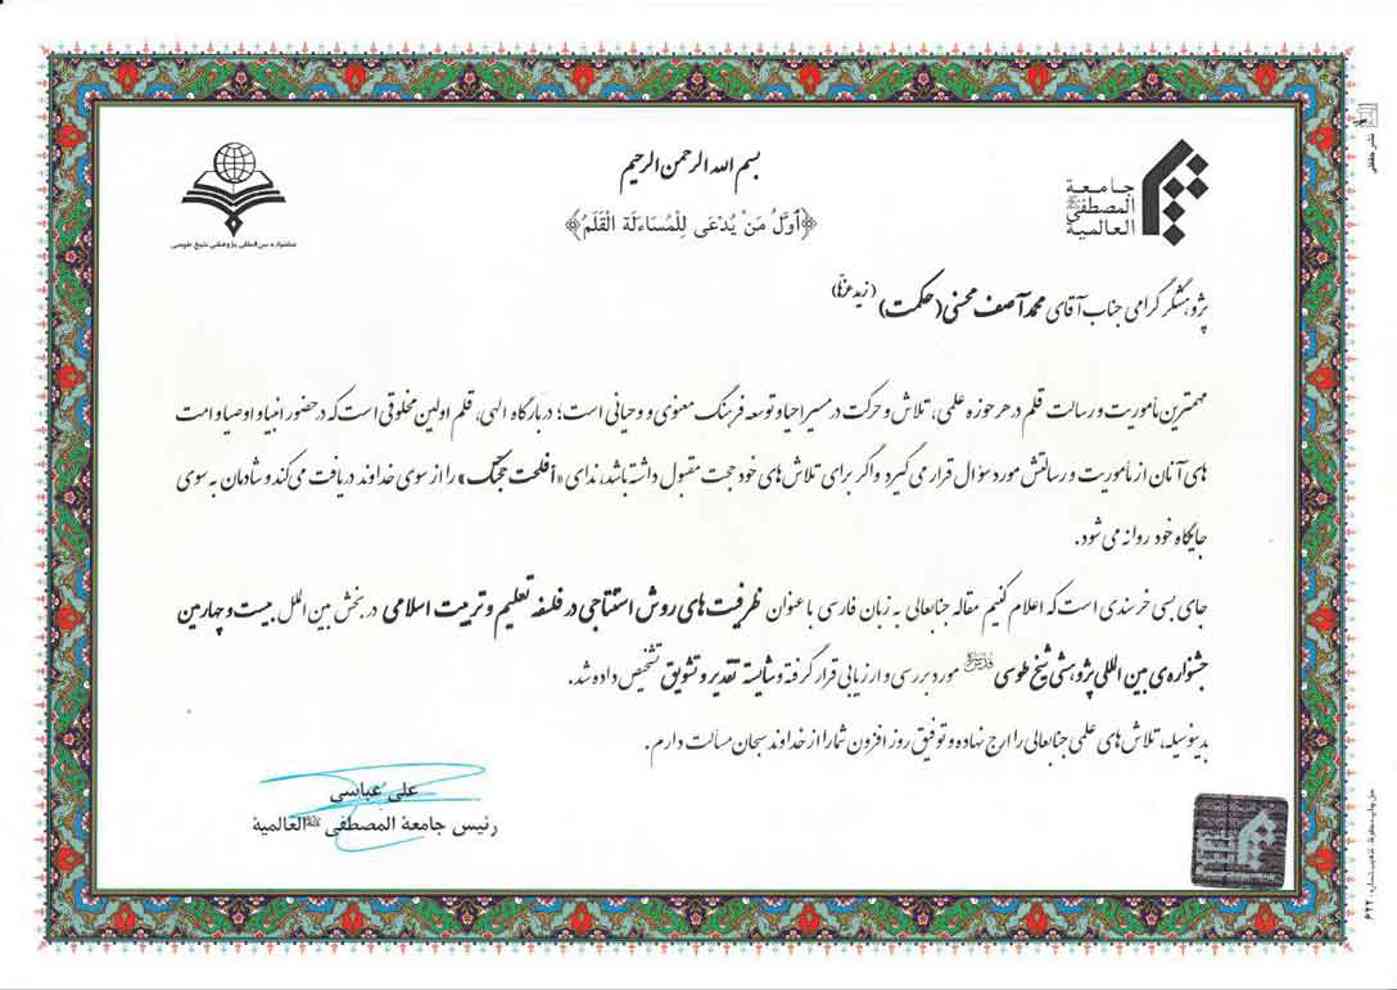 بسم الله الرحمن الرحیم
﴿أوَّلُ مَنْ يُدْعَى لِلْمُسَاءَلَة الْقَلَمُ﴾
جامعة
المصطفی
العالمیة
جشنواره بین‌المللی پژوهشی شیخ طوسی
پژوهشگر گرامی جناب آقای محمد آصف محسنی (حکمت) (زید عزه)
مهمترین مأموریت و رسالت قلم در هر حوزه علمی، تلاش و حرکت در مسیر احیا و توسعه فرهنگ معنوی و وحیانی است؛ در بارگاه الهی، قلم اولین مخلوقی است که در حضور انبیا و اوصیا و امت
های آنان از مأموریت و رسالتش مورد سؤال قرار می گیرد و اگر برای تلاش های خود حجت مقبول داشته باشد، ندای «أفلحت حجتک» را از سوی خداوند دریافت می کند و شادمان به سوی
جایگاه خود روانه می شود.
جای بسی خرسندی است که اعلام کنیم مقاله جنابعالی به زبان فارسی با عنوان ظرفیت های روش استنتاجی در فلسفه تعلیم و تربیت اسلامی در بخش بین الملل بیست و چهارمین
جشنواره‌ی بین المللی پژوهشی شیخ طوسی مورد بررسی و ارزیابی قرار گرفته و شایسته تقدیر و تشویق تشخیص داده شد.
بدینوسیله، تلاش های علمی جنابعالی را ارج نهاده و توفیق روز افزون شما را از خداوند سبحان مسألت دارم.
علی عباسی
رئیس جامعة المصطفی العالمیة